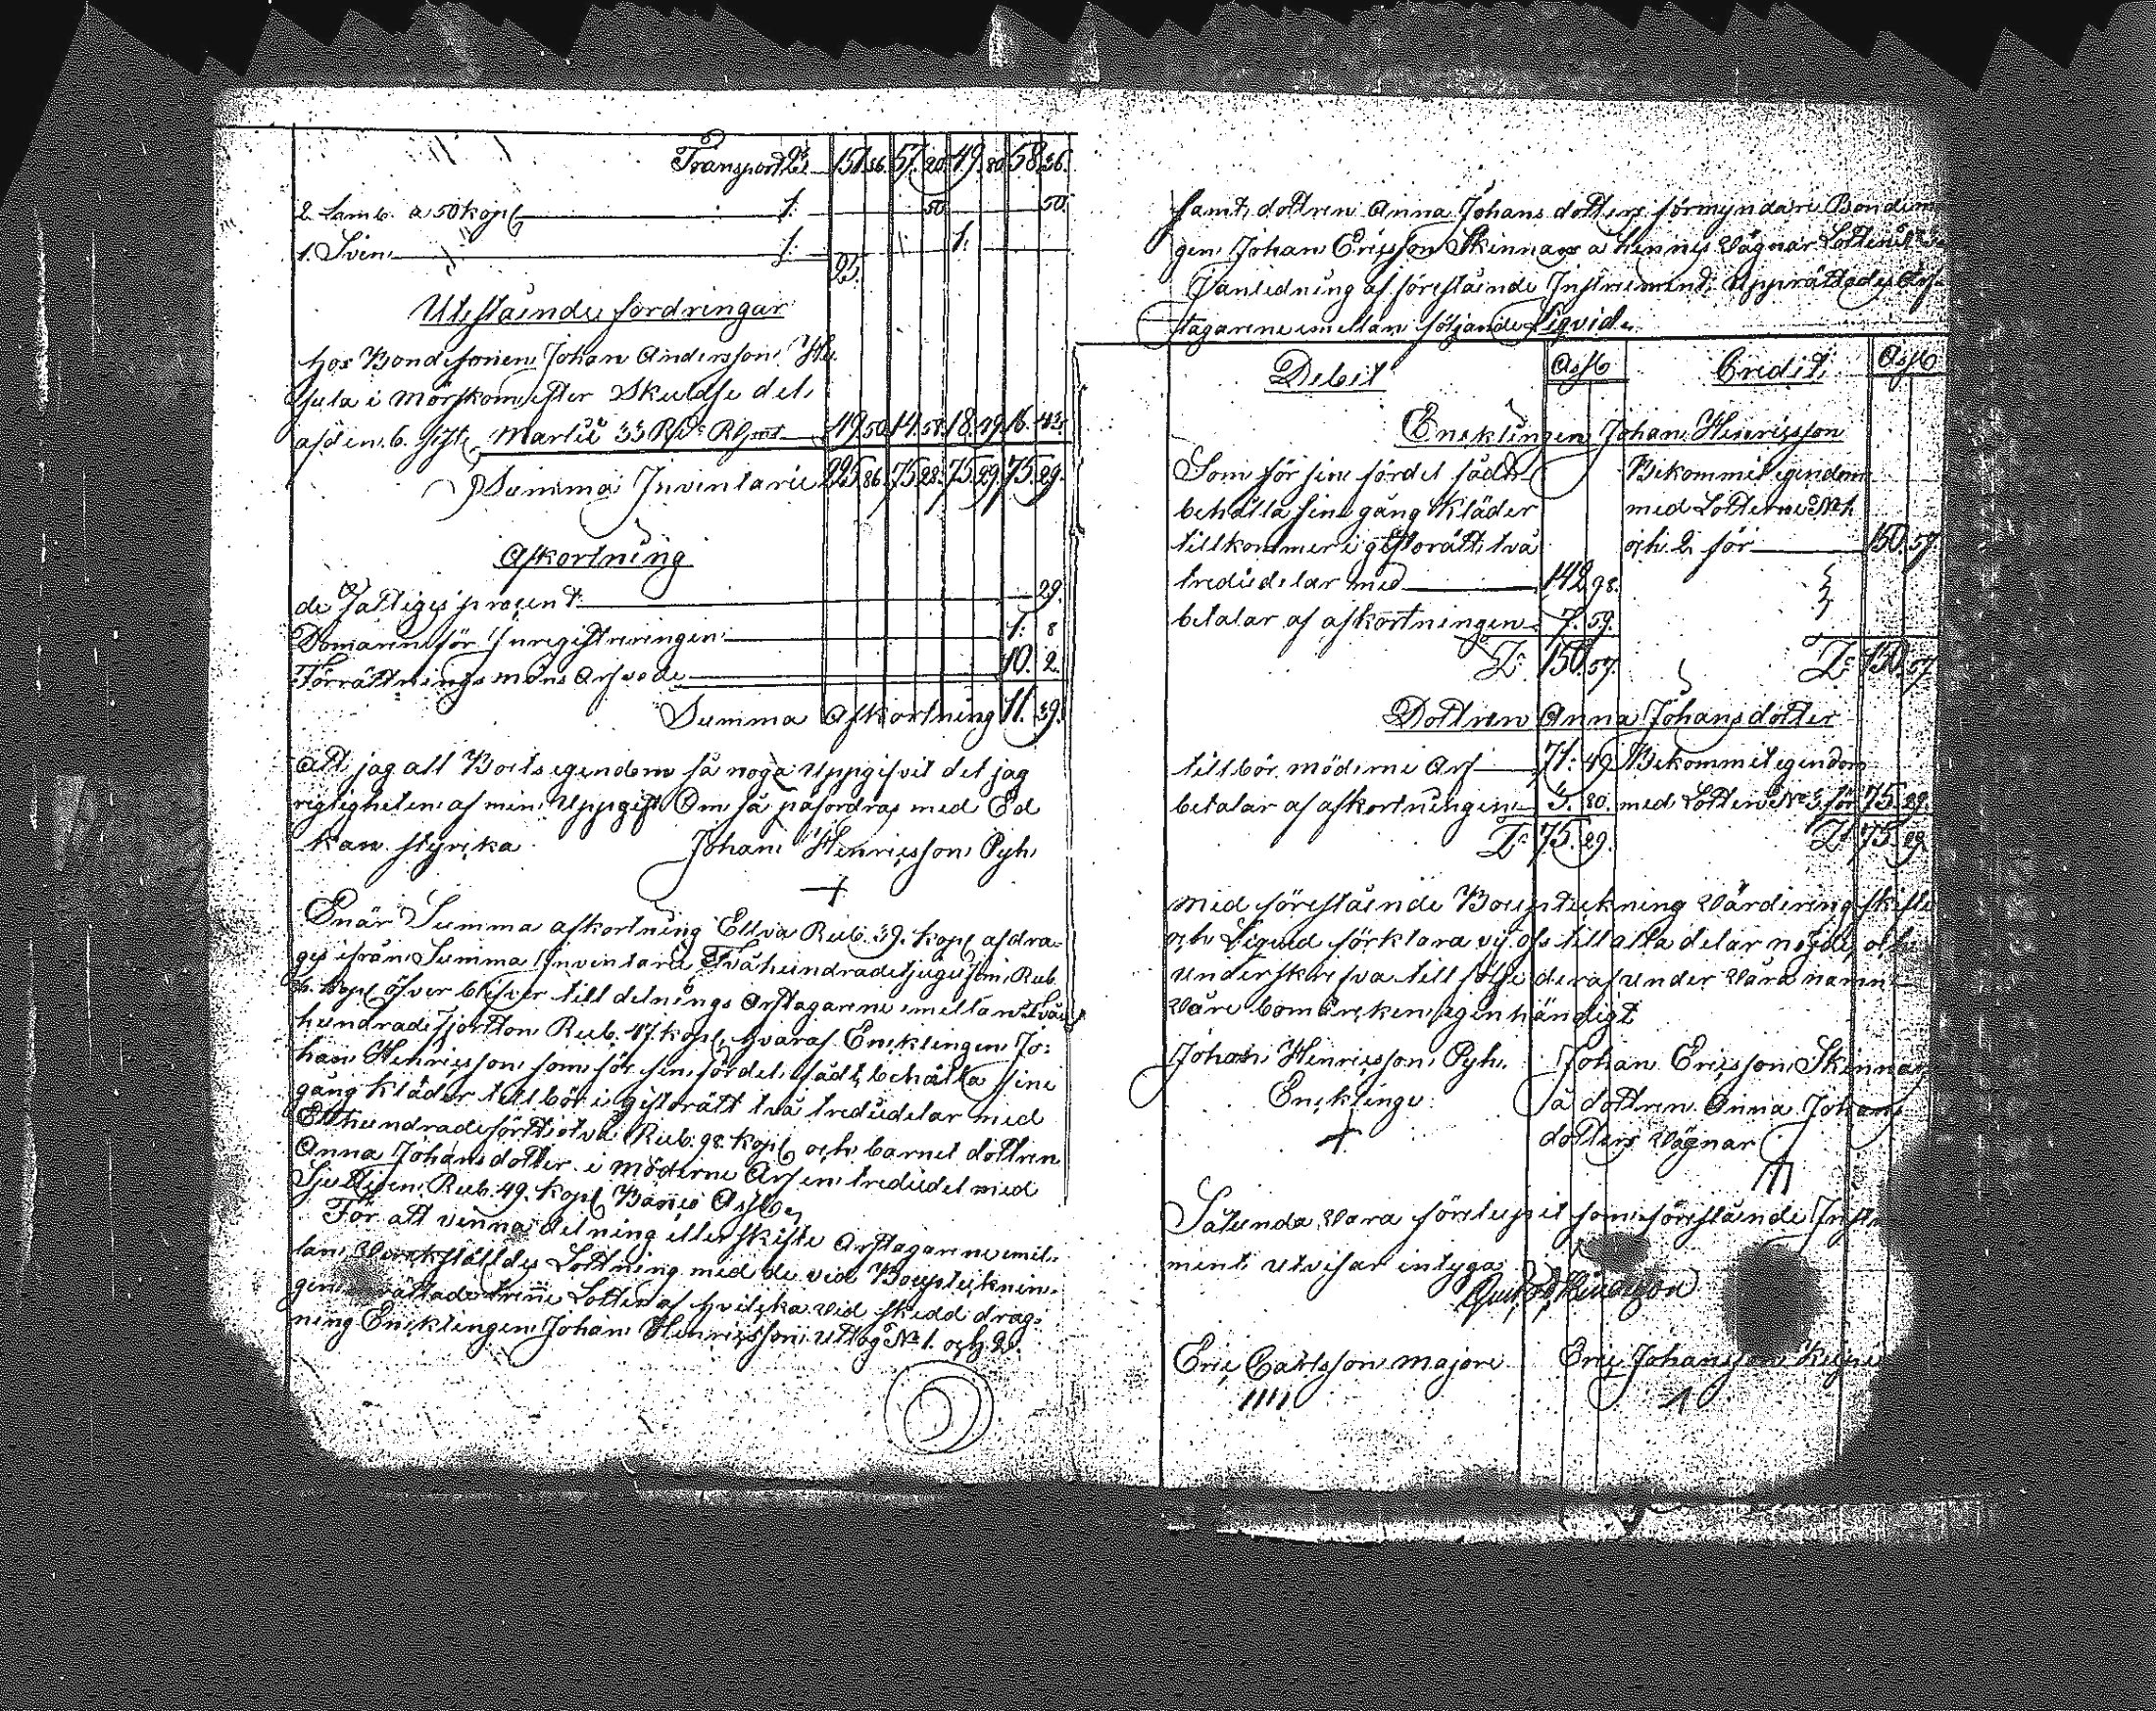 Transport R:S 151. 36. 57. 20. 49. 80. 58. 36.
2 Lamb. a 50 kop 1: 50. 50.
1 Svin 1: 1:
25.
Utestående fordringar
hos Bondesonen Johan Andersson
i Mörskom efter Skuldse del
af den 6 sistl. Martii 33 49. 50. 14. 58. 18. 49. 16. 43.
Summa Inventarii 225. 86. 75. 28. 75. 29. 75. 29.
Afkortning
de Fattiges procent 29.
Domaren för Inregistreringen 1: 8
Förrättnings mäns Arfvode 10. 2.
Summa Afkortning 11. 39.
Att jag all Boets egendom så noga uppgifvit det jag
rigtigheten af min uppgift Om så påfordras med Ed
kan styrcka Johan Henricsson Pyh
Enär Summa afkortning Ellva Rub. 39. kop afdra-
ges ifrån Summa Inventarii Tvåhundradetjugufem Rub
kop öfver blifver till delnings Arftagarene emellan Två
hundradefjortton Rub. 47. kop, hvaraf Encklingen Jo-
han Henricsson som för sin fördel fådt behålla sine
gång kläder tillbör i giftorätt två tredüdelar med
Etthundradeförtitvå Rub. 98. kop och barnet dottren
Anna Johans dotter i möderne Arf en tredüdel med
Sjuttioen Rub. 49. kop Banco Assg
För att vinna delning eller skifte Arftagarene emel-
lan, Verkställdes Lottning med de vid Bouptecknin-
gen rättade trenne Lotter af hvilcka vid skedd drag-
ning Encklingen Johan Henricsson uttog No 1. och 2.
samt dottren Anna Johans dotters förmyndare Bonden
gen Johan Ericsson Skinnars å hennes vägnar Lotten No 3
I anledning af förestående Instrument Upprättades Arf-
tagarene emellan följande Liqvid
Debet Assg Credit Assg
Encklingen Johan Henricsson
Som för sin fördel fådt Bekommit egendom
behålla sine gång kläder med Lotterne No 1
tillkommer i giftorätt två och 2 för 150. 57.
tredüdelar med 142. 98.
betalar af afkortningen 7. 59.
S:a 150. 57. S:a 150. 57.
Dottren Anna Johans dotter
tillbör möderne Arf 71: 49. Bekommit egendom
betalar af afkortningen 3. 80. med Lotten No 3 för 75. 29.
S:a 75. 29. S:a 75. 29.
Med förestående Bouptekning Värdering skifte
och Liquid förklara vij oss till alla delar nöjde, och
underskrifva till följe deraf under Våra namn
Våre bomärcken egenhändigt
Johan Henricsson Pyh. Johan Ericsson Skinnars
Encklinge. å dottren Anna Johans
dotters Vägnar
Sålunda vara förelupit som förestående Instru
ment utvisar intyga
Eric Carlsson Majors Eric Johansson